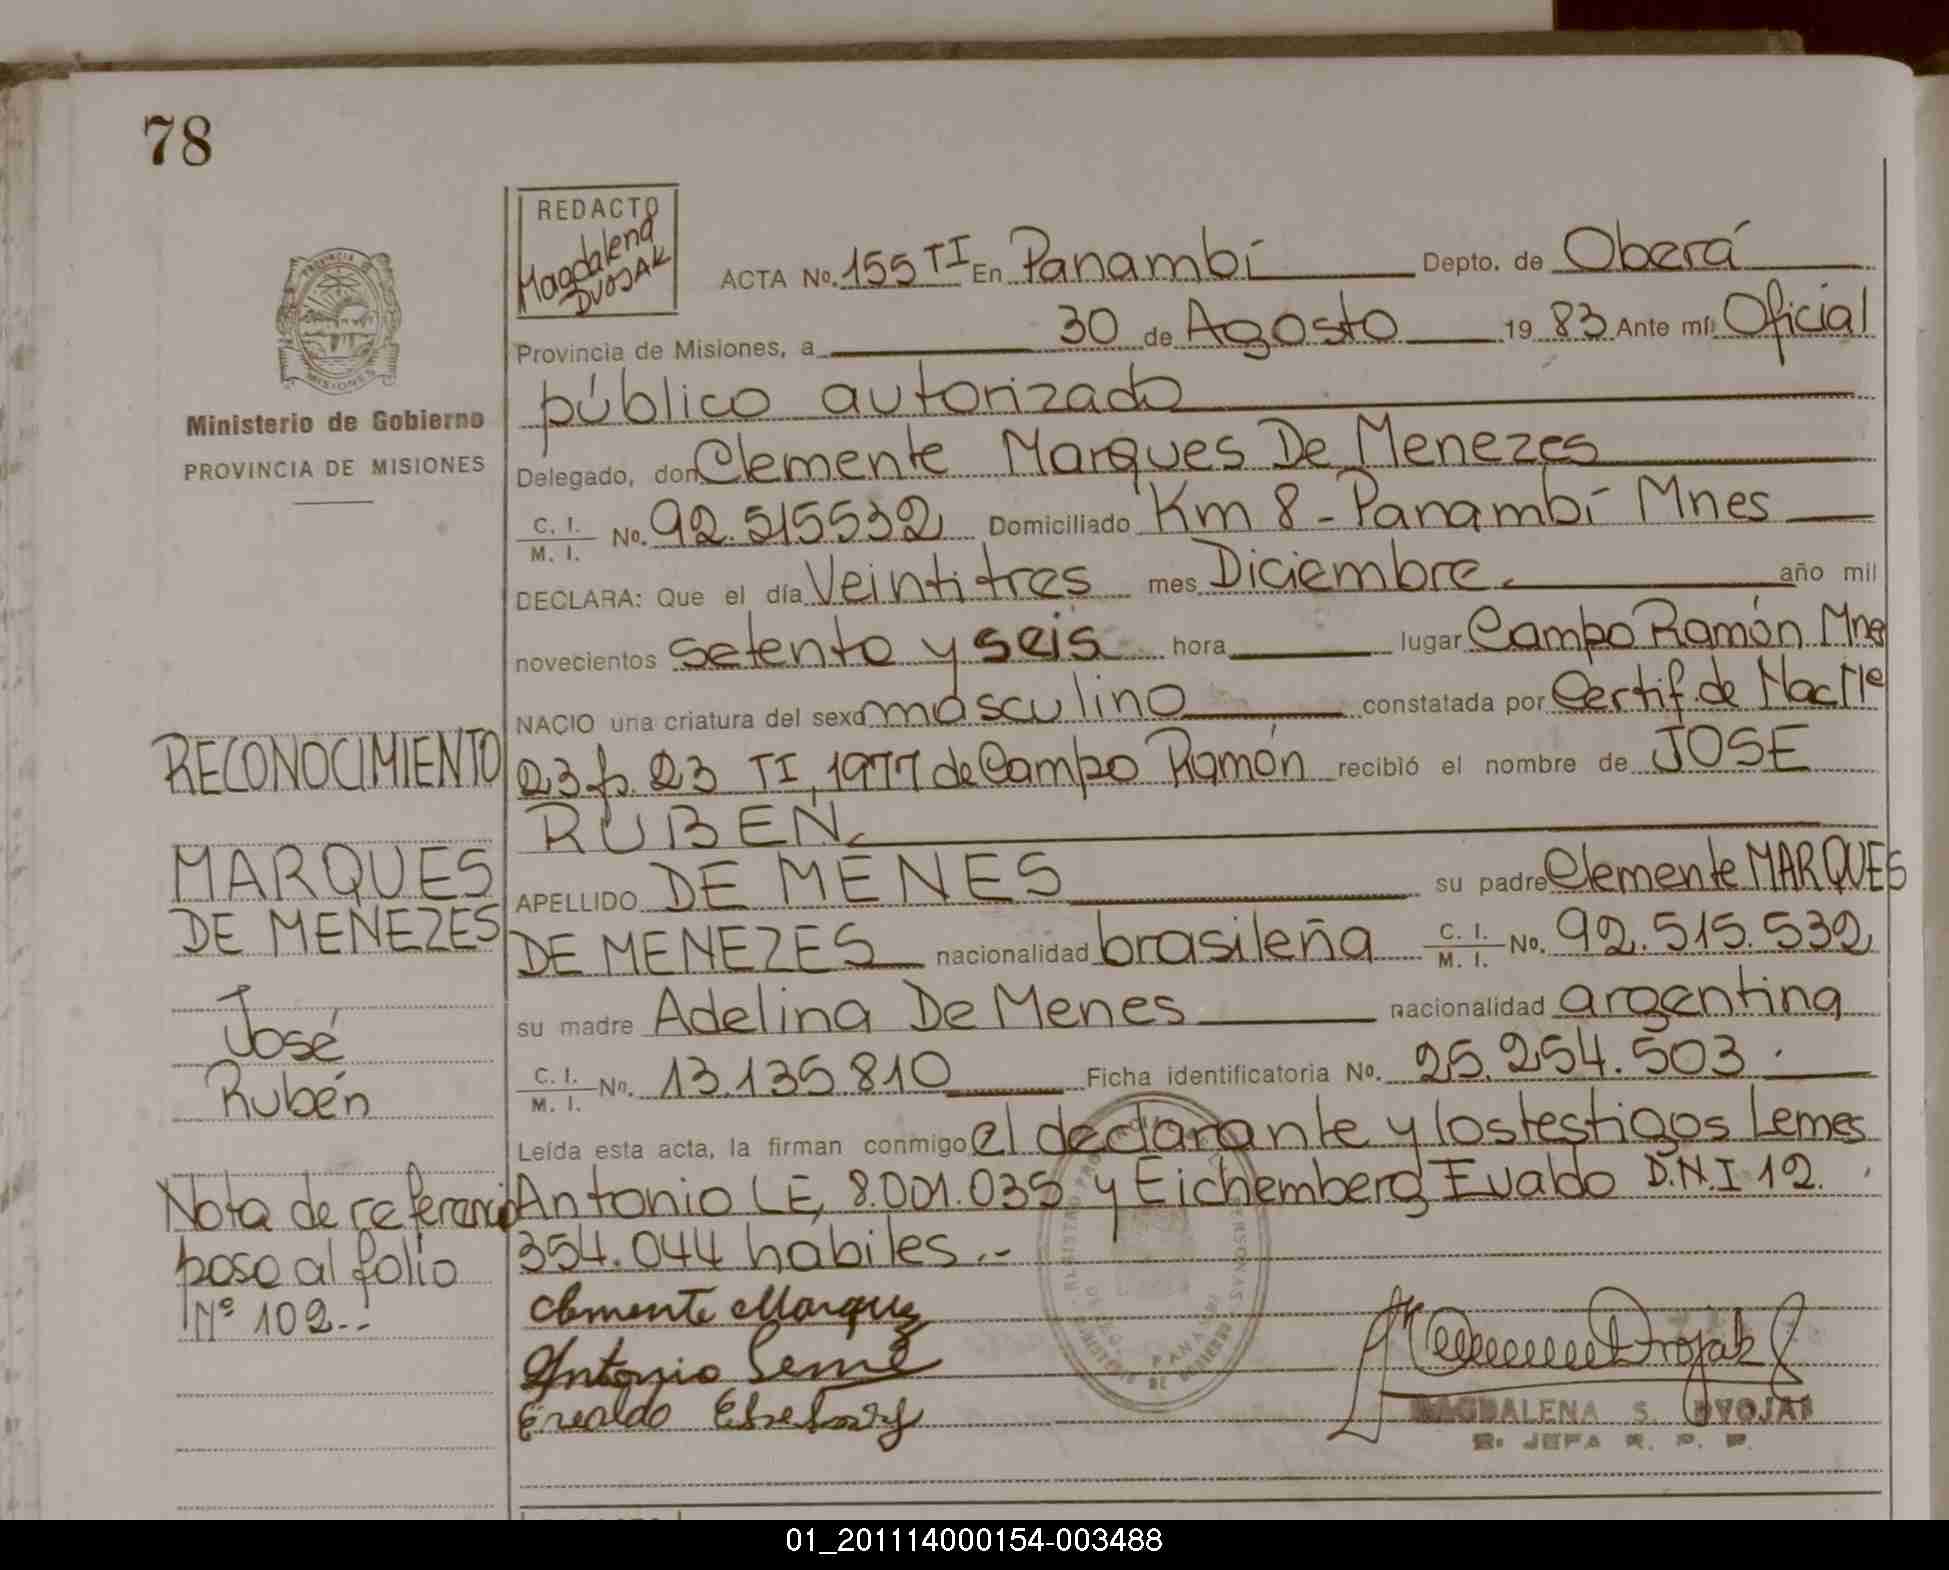 78
REDACTO
Magdalena
DVOJAK
ACTA No. 155 TI En Panambí Depto. de Oberá
Provincia de Misiones, a 30 de Agosto 19 83 Ante mí: Oficial
público autorizado
Delegado, don Clemente Marques De Menezes
C. I.
M. I. No. 92.515532 Domiciliado Km 8 - Panambí Mnes
DECLARA: Que el día Veintitres mes Diciembre. año mil
novecientos setenta y seis hora lugar Campo Ramón Mnes
NACIO una criatura del sexo masculino constatada por Certif. de Nac Nº
23 fº. 23 TI, 1977 de Campo Ramón recibió el nombre de JOSE
RUBEN.
APELLIDO DE MENES su padre Clemente MARQUES
DE MENEZES nacionalidad brasileña C. I.
M. I. No. 92.515.532
su madre Adelina De Menes nacionalidad argentina
C. I.
M. I. No. 13.135.810 Ficha identificatoria No. 25.254.503.
Leída esta acta, la firman conmigo el declarante y los testigos Lemes
Antonio LE, 8.001.035 y Eichemberg Evaldo D.N.I 12.
354.044 habiles.-
Clemente Marques
Antonio Leme
Dvojak
MAGDALENA S. DVOJAK
JEFA R. P. P.
PROVINCIA DE
MISIONES
Ministerio de Gobierno
PROVINCIA DE MISIONES
RECONOCIMIENTO
MARQUES
DE MENEZES
José
Rubén
Nota de referencia
pasa al folio
Nº 102.-
01_201114000154-003488